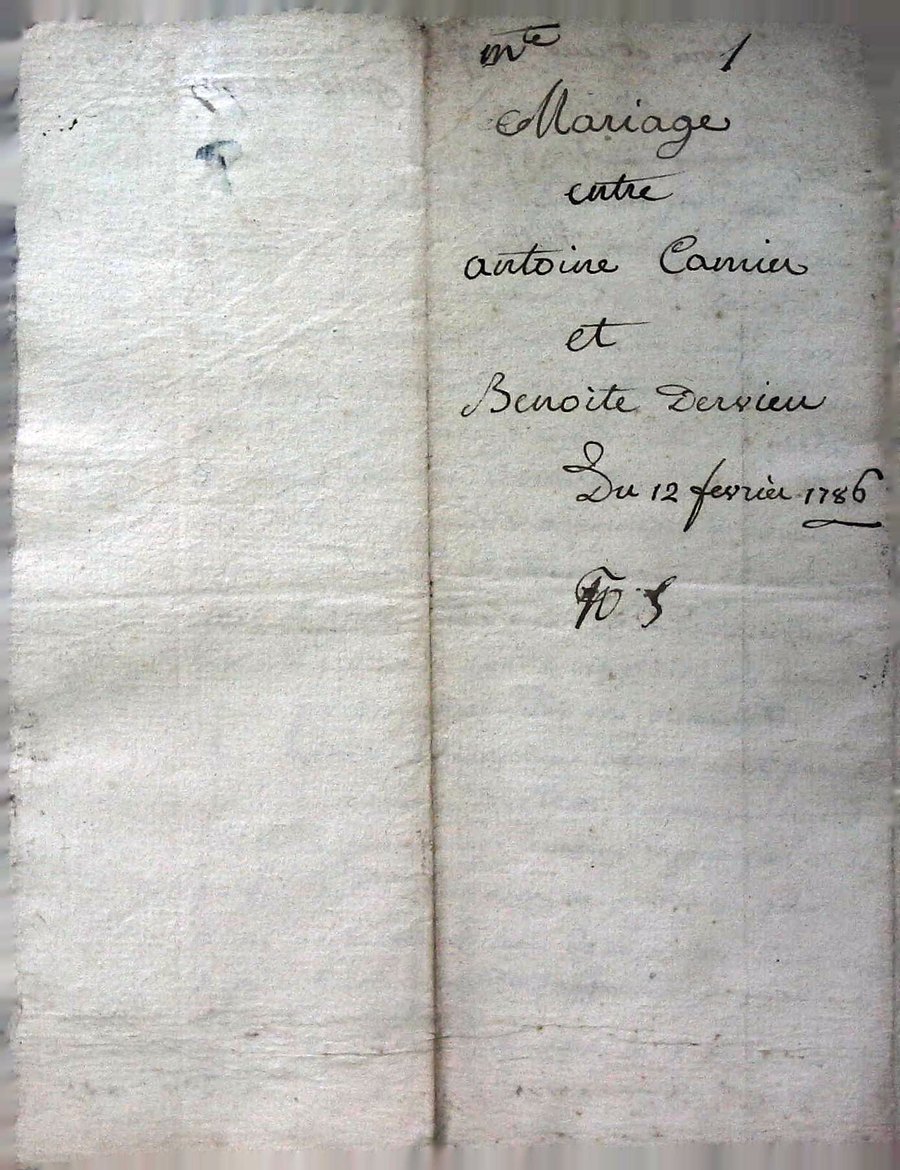 mte 1
Mariage
entre
antoine Camier
et
Benoite Dervieu
Du 12 fevrier 1786